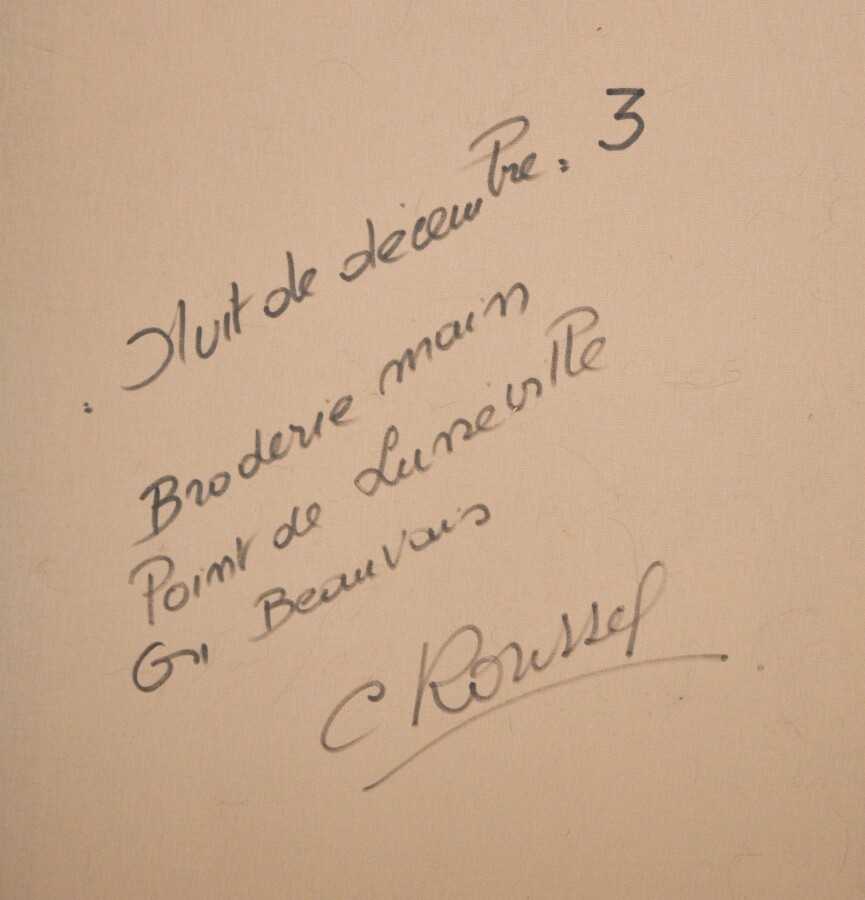 : Nuit de décembre : 3
Broderie main
Point de Lunéville
Beauvais
C Roussel